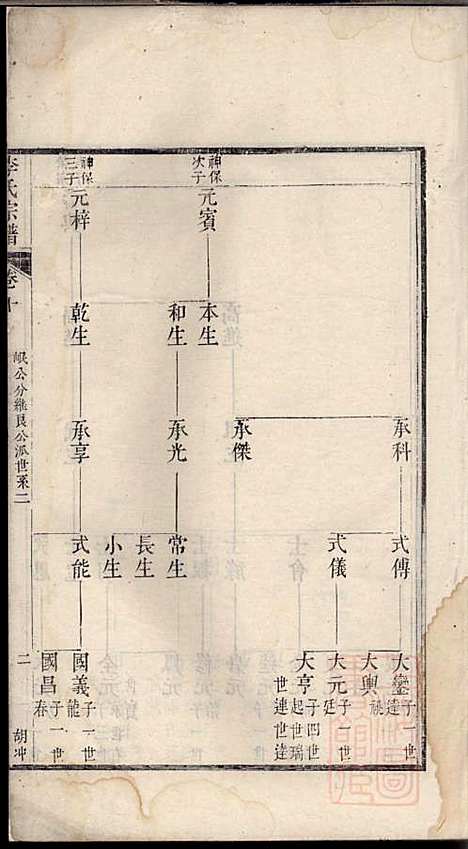 承科
式傳
大鑾子一世達
大興祧
式儀
大元子一世廷
大亨子四世瑞世起世連世達
承傑
神保次子
元賓
本生
和生
承光
常生
長生
小生
神保三子
元梓
乾生
承享
式能
國義子一世龍
國昌子一世春
李氏宗譜
卷十
岷公分維艮公派世系二
二
胡坤